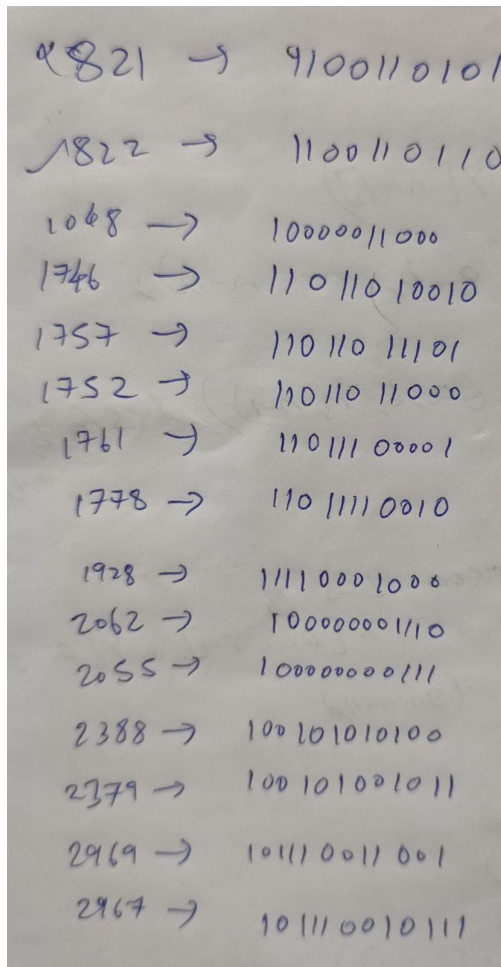 9821 → 9100110101
1822 → 1100110110
1048 → 10000011000
1746 → 11011010010
1757 → 11011011101
1752 → 11011011000
1761 → 11011100001
1778 → 11011110010
1928 → 11110001000
2062 → 100000001110
2055 → 100000000111
2388 → 100101010100
2379 → 100101001011
2969 → 101110011001
2967 → 101110010111